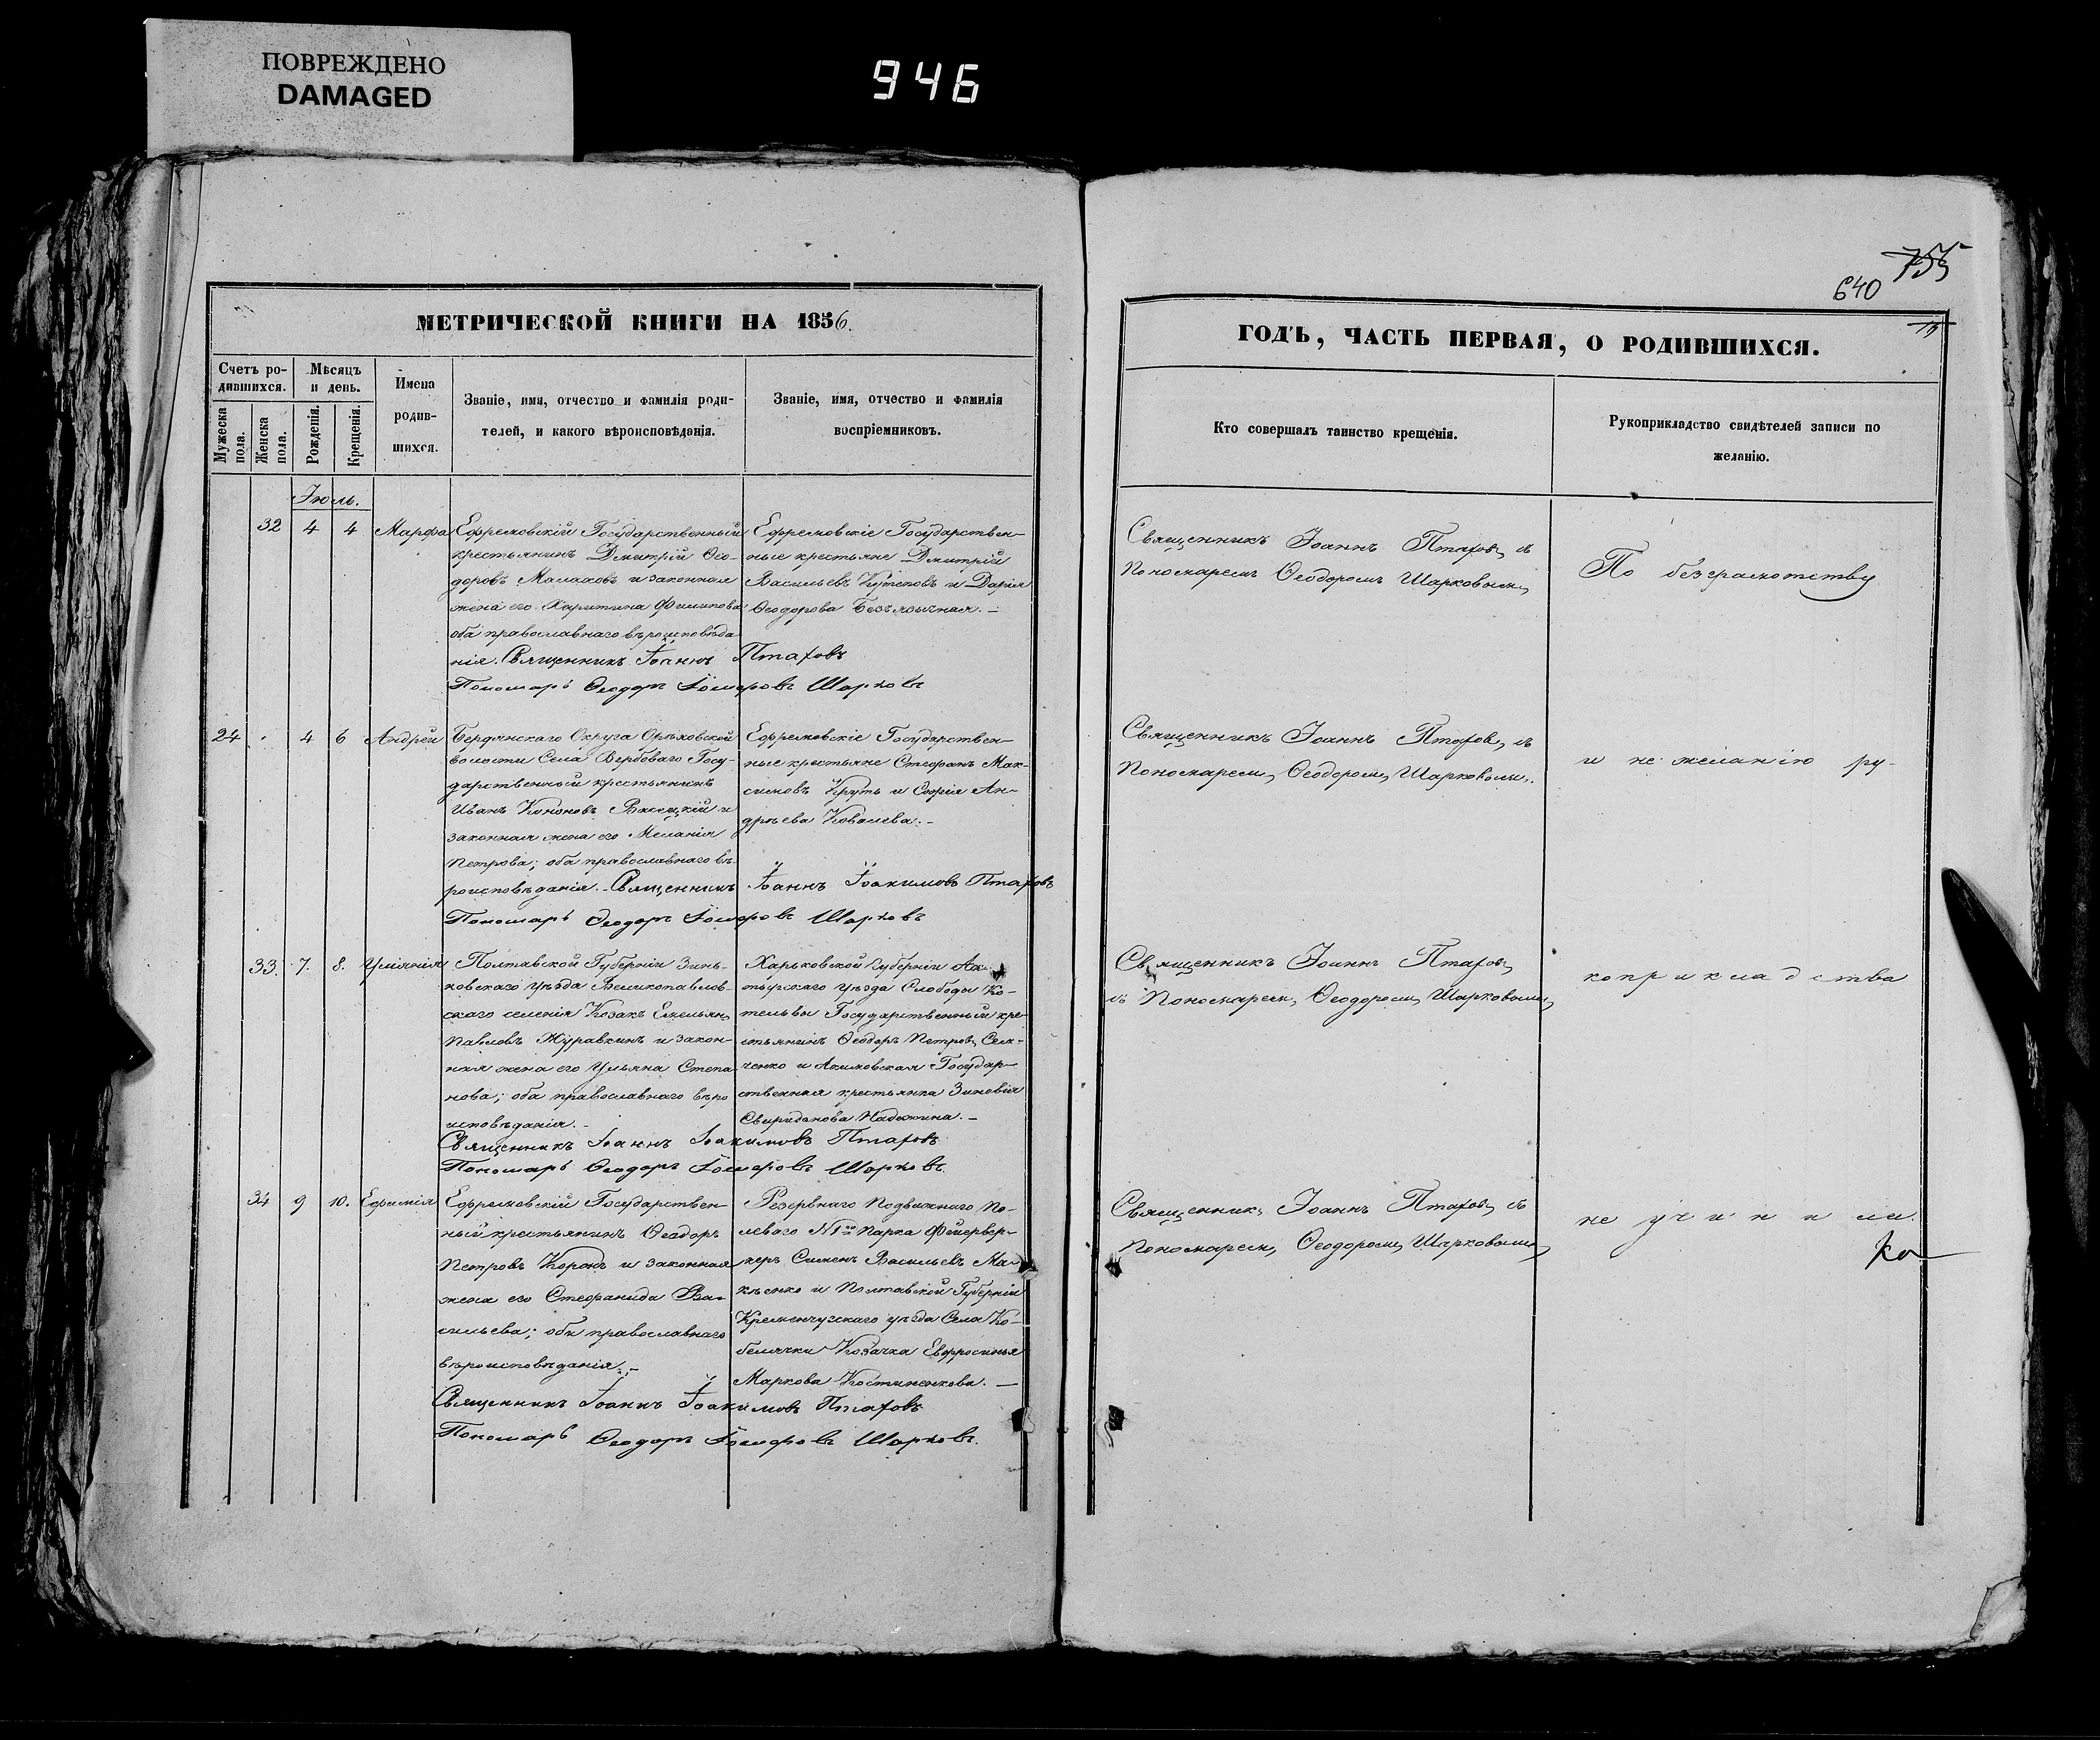 ПОВРЕЖДЕНО
DAMAGED
946
755
640
МЕТРИЧЕСКОЙ КНИГИ НА 1856.
ГОДЪ, ЧАСТЬ ПЕРВАЯ, О РОДИВШИХСЯ.
Счетъ ро-
дившихся.
Мужеска пола.
Женска пола.
Мѣсяцъ
и день.
Рожденія.
Крещенія.
Имена
родив-
шихся.
Званіе, имя, отчество и фамилія роди-
телей, и какого вѣроисповѣданія.
Званіе, имя, отчество и фамилія
воспріемниковъ.
Кто совершалъ таинство крещенія.
Рукоприкладство свидѣтелей записи по
желанію.
Іюль.
32 4 4 Марфа
Ефремовскій Государственный
крестьянинъ Дмитрій Ѳео-
доровъ Малаховъ и законная
жена его Харитина Филипова
оба православнаго вѣроисповѣда
нія. Священникъ Іоаннъ Птаховъ
Пономарь Ѳеодоръ Шарковъ
Ефремовскіе Государствен-
ные крестьяне Дмитрій
Васильевъ Кутеповъ и Дарія
Ѳеодорова Безъязычная. –
Священникъ Іоаннъ Птаховъ, съ
Пономаремъ Ѳеодоромъ Шарковымъ
По безграмотству
24 4 6 Андрей
Бердянскаго Округа Орѣховской
волости Села Вербоваго Госу-
дарственной крестьянинъ
Иванъ Кононовъ Высоцкій и
законная жена его Меланія
Петрова; оба православнаго вѣ-
роисповѣданія. – Священникъ Іоаннъ Іоакимовъ Птаховъ
Пономарь Ѳеодоръ Шарковъ
Ефремовскіе Государствен-
ные крестьяне Стефанъ Мак-
симовъ Круть и Софія Ан-
дрѣева Ковалева. –
Священникъ Іоаннъ Птаховъ, съ
Пономаремъ Ѳеодоромъ Шарковымъ.
и не желанію ру-
33. 7. 8. Уліянія
Полтавской Губерніи Зинь-
ковскаго уѣзда Великопавлов-
скаго селенія Козакъ Емельянъ
Павловъ Журавкинъ и закон-
ная жена его Ульяна Степа
нова; оба православнаго вѣро
исповѣданія. –
Священникъ Іоаннъ Іоакимовъ Птаховъ
Пономарь Ѳеодоръ Шарковъ.
Харьковской Губерніи Ах
тырскаго уѣзда Слободы Ко-
тельвы Государственный кре-
стьянинъ Ѳеодоръ Петровъ Сем-
ченко и Акимовская Государ-
ственная крестьянка Зиновія
Свиридонова Надежина. –
Священникъ Іоаннъ Птаховъ,
съ Пономаремъ, Ѳеодоромъ Шарковымъ,
коприкладства
34 9 10. Ефимія
Ефремовскій Государствен
ный крестьянинъ Ѳеодоръ
Петровъ Коронъ и законная
жена его Стефанида Ва-
сильева; оба православнаго
вѣроисповѣданія. –
Священникъ Іоаннъ Іоакимовъ Птаховъ
Пономарь Ѳеодоръ Шарковъ.
Резервнаго Подвижнаго По-
леваго №1го Парка Фейервер-
керъ Сименъ Васильевъ Ма-
кѣенко и Полтавской Губерніи
Кременчугскаго уѣзда Села Ко-
белячки Козачка Евфросинья
Маркова Костиненкова. –
Священникъ, Іоаннъ Птаховъ, съ
Пономаремъ, Ѳеодоромъ Шарковымъ
не учинили.